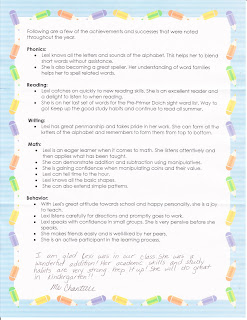 Following are a few of the achievements and successes that were noted
throughout the year.
Phonics:
• Lexi knows all the letters and sounds of the alphabet. This helps her to blend
short words without guidance.
• She is also becoming a great speller. Her understanding of word families
helps her to spell related words.
Reading:
• Lexi catches on quickly to new reading skills. She is an excellent reader and
a delight to listen to when reading.
• She is on her last set of words for the Pre-Primer Dolch sight word list. Way to
go! Keep up the good study habits and continue to read all summer.
Writing:
• Lexi has great penmanship and takes pride in her work. She can form all the
letters of the alphabet and remembers to form them from top to bottom.
Math:
• Lexi is an eager learner when it comes to math. She listens attentively and
then applies what has been taught.
• She can demonstrate addition and subtraction using manipulatives.
• She is gaining confidence when manipulating coins and their value.
• Lexi can tell time to the hour.
• Lexi knows all the basic shapes.
• She can also extend simple patterns.
Behavior:
• With Lexi's great attitude towards school and happy personality, she is a joy
to teach.
• Lexi listens carefully for directions and promptly goes to work.
• Lexi speaks with confidence in small groups. She is very pensive before she
speaks.
• She makes friends easily and is well-liked by her peers.
• She is an active participant in the learning process.
I am glad Lexi was in our class. She was a
wonderful addition! Her academic skills and study
habits are very strong. Keep it up! She will do great
in Kindergarten!!